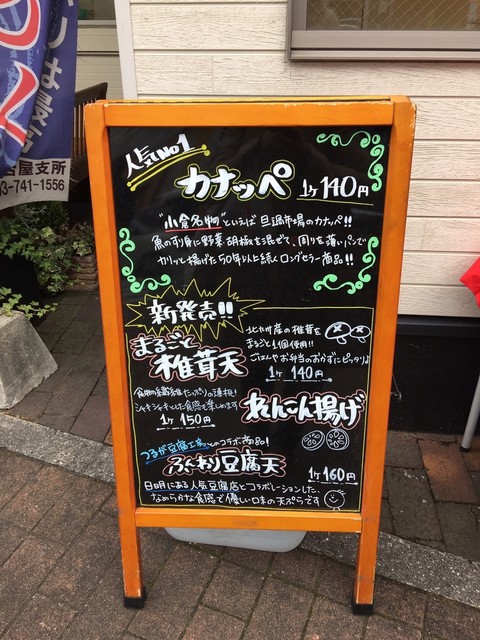 古屋支所
3-741-1556
人気No1
カナッペ 1ケ 140円
"小倉名物"といえば旦過市場のカナッペ!!
魚のすり身に野菜・胡椒を混ぜて、周りを薄いパンで
カリッと揚げた50年以上続くロングセラー商品!!
新発売!!
まるごと
椎茸天
北九州産の椎茸を
まるごと1個使用!!
ごはんやお弁当のおかずにピッタリ♪
1ケ 140円
食物の繊維たっぷりの蓮根!
シャキシャキとした食感を楽しめます
1ケ 150円
れんこん揚げ
つるが豆腐工房とのコラボ商品!
ふんわり豆腐天 1ケ160円
日明にある人気豆腐店とコラボレーションした、
なめらかな食感で優しい口味の天ぷらです